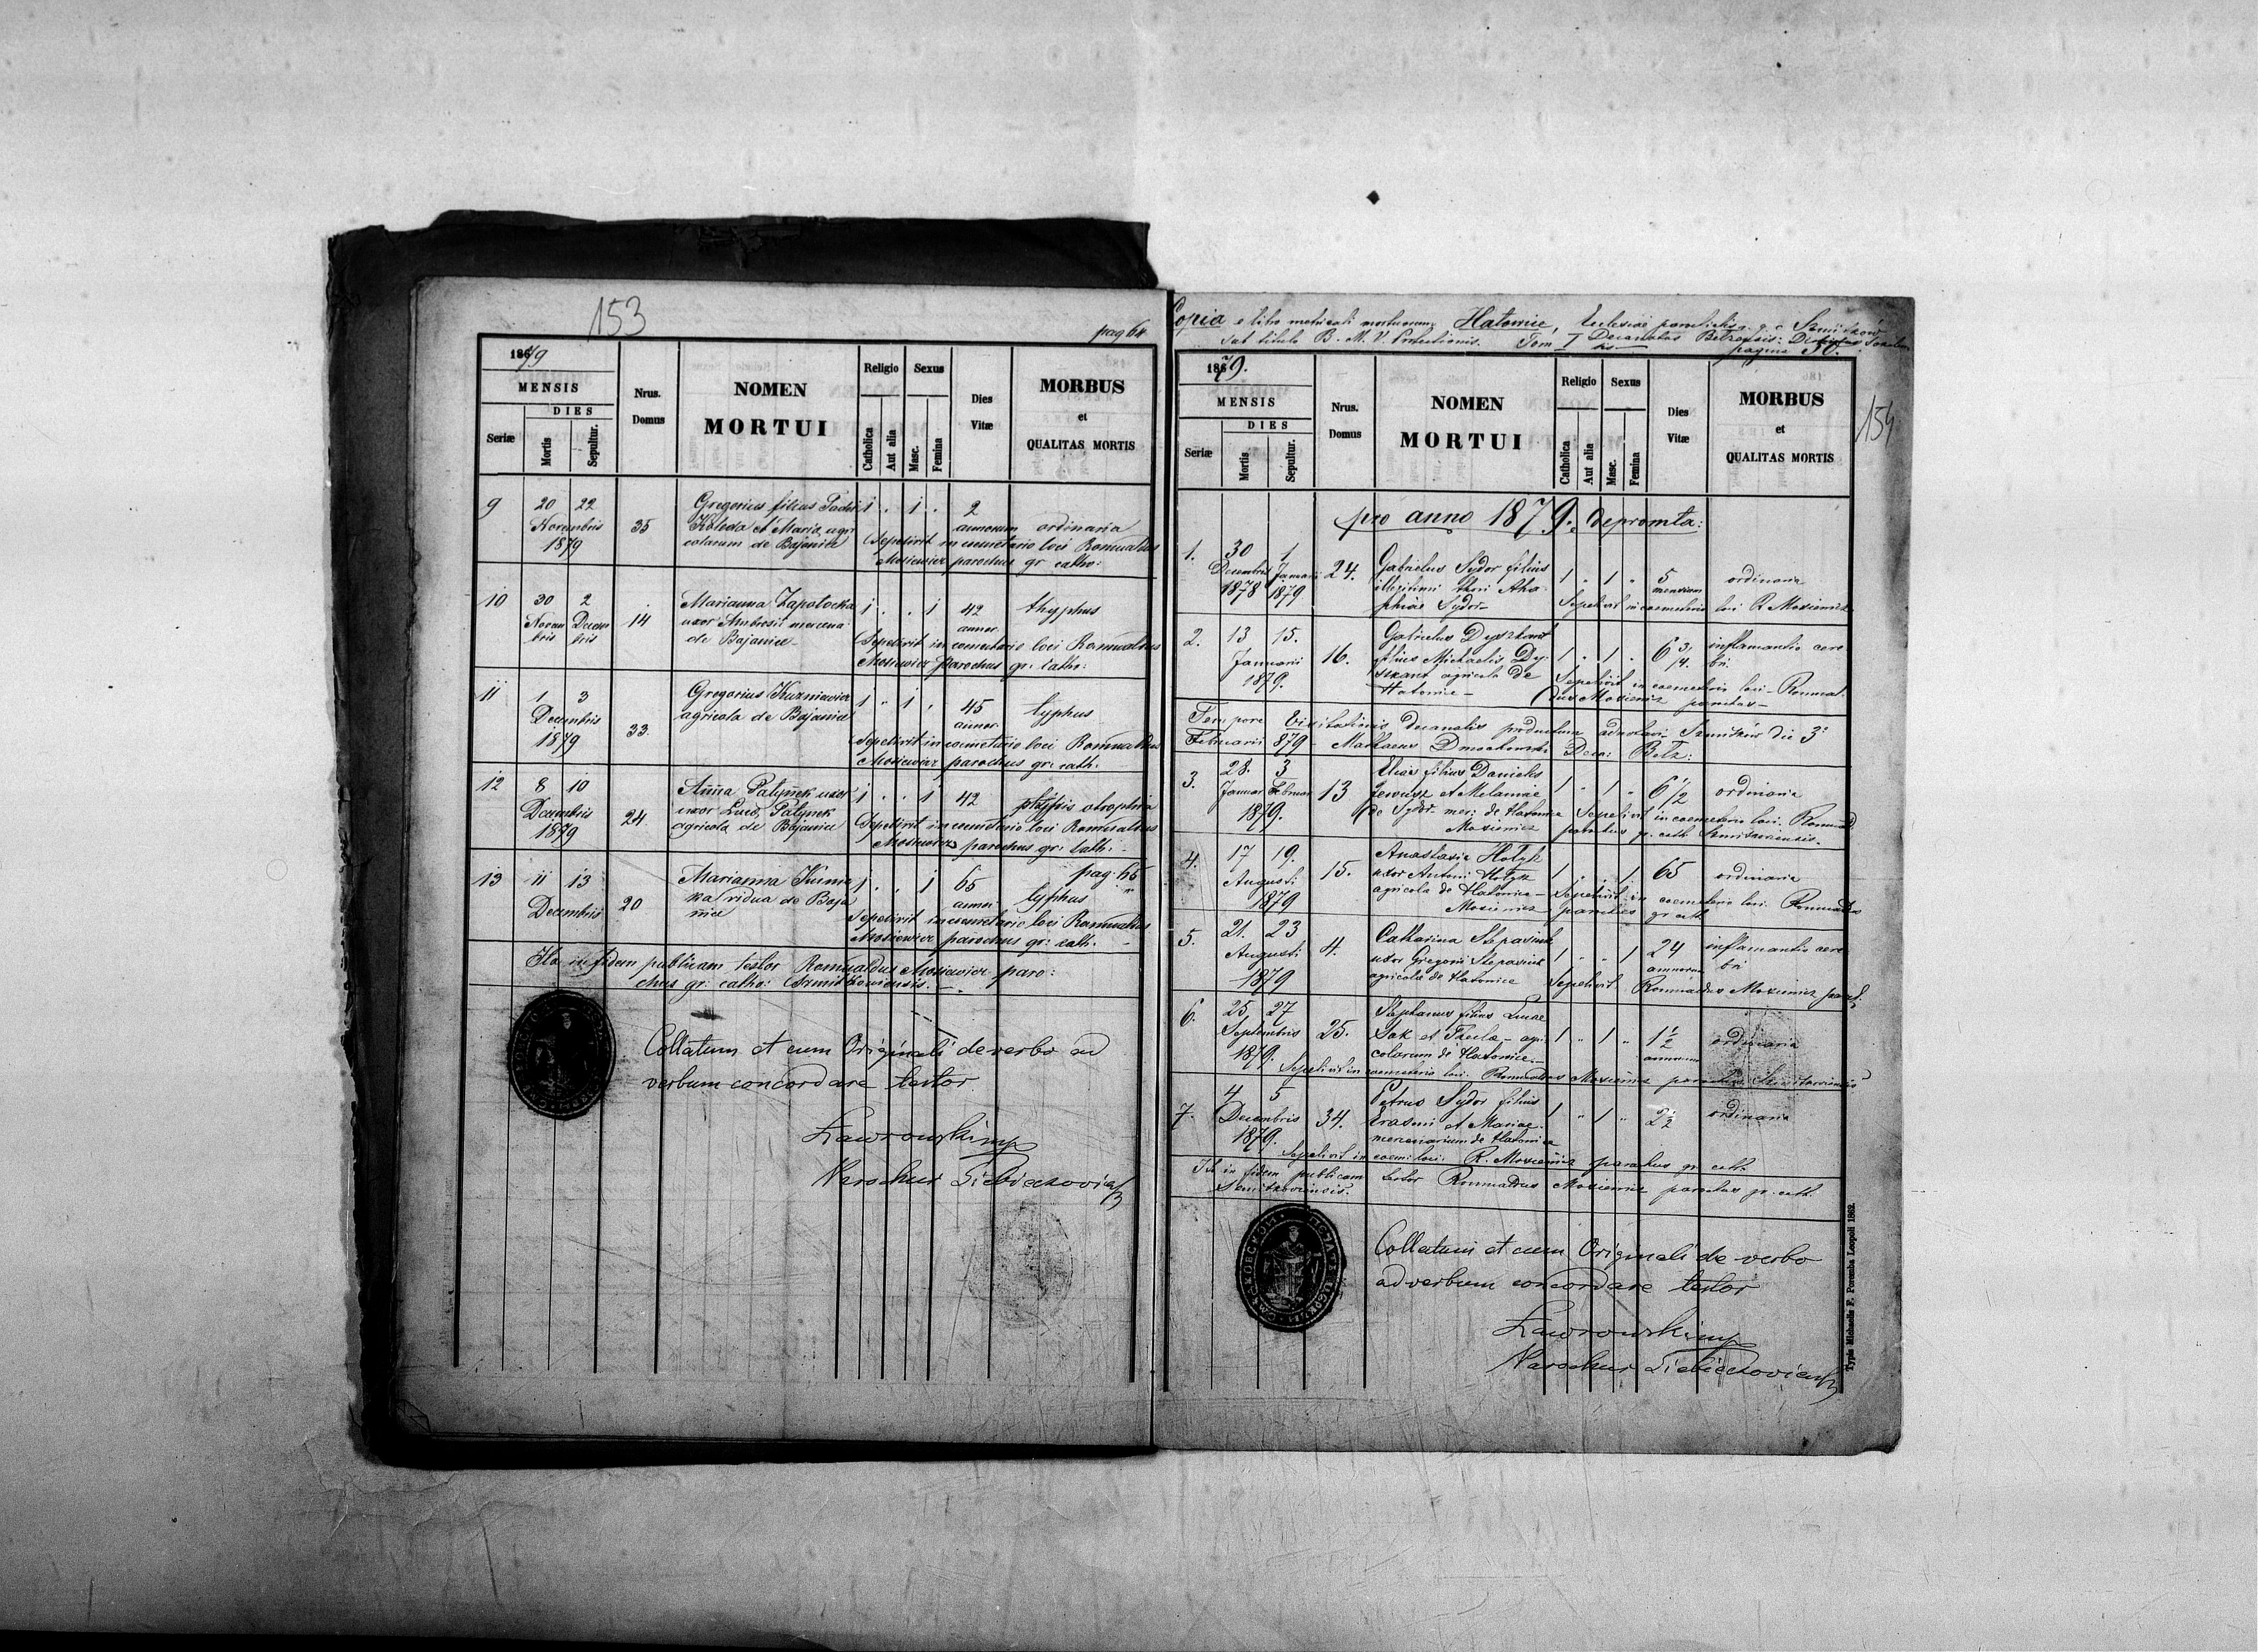 153
pag 64
1879
MENSIS
DIES
Seriæ
Mortis
Sepultur.
Nrus.
Domus
NOMEN
MORTUI
Religio
Catholica
Aut alia
Sexus
Masc.
Femina
Dies
Vitæ
MORBUS
et
QUALITAS MORTIS
9 20 22 Novembris 1879 35
Gregorius filius
Koleda et Maria agri
colarum de Bojanice
1 . 1 . 2 annorum ordinaria
Sepelivit in coemetario loci Romualdus
Mosiewicz parochus gr catho:
10 30 2 Novem Decem
bris bris 14
Marianna Zapotocka
uxor Ambrosii mercena
de Bojanice
1 . . 1 42 annor. thyphus
Sepelivit in coemetario loci Romualdus
Mosiewicz parochus gr: catho:
11 1 3 Decembris 1879 33
Gregorius Kuzniewicz
agricola de Bojanice
1 . 1 . 45 annor. typhus
Sepelivit in coemetario loci Romualdus
Mosiewicz parochus gr: cath:
12 8 10 Decembris 1879 24
Anna Patynek uxor
uxor Luca Patynek
agricola de Bojanice
1 . . 1 42 phtysis atrophia
Sepelivit in coemetario loci Romualdus
Mosiewicz parochus gr: cath:
pag. 65
13 11 13 Decembris 20
Marianna
ka vidua de Boja
nice
1 . . 1 65 annor. typhus
Sepelivit in coemetario loci Romualdus
Mosiewicz parochus gr: cath.
Ita in fidem publicam testor Romualdus Mosiewicz paro:
chus gr: catho:
Collatum et cum Originali de verbo ad
verbum concordare testor
Ławrowski mp
Copia e libro metricali mortuorum Hatowice, Ecclesiae parochialis g. c
sub titulo B. M. V. Protectionis. Tom I Decanatus
pagina
154
1879.
MENSIS
DIES
Seriæ
Mortis
Sepultur.
Nrus.
Domus
NOMEN
MORTUI
Religio
Catholica
Aut alia
Sexus
Masc.
Femina
Dies
Vitæ
MORBUS
et
QUALITAS MORTIS
pro anno 1879. depromta:
1. 30 1 Decembris Januari 1878 1879 24.
Gabrielus Sydor filius
illegitimi thori Aga
phiae Sydor
1 " 1 " 5 mensium ordinaria
Sepelivit in coemeterio loci R Mosiewicz
2. 13 15. Januarii 1879. 16.
Gabrielus
filius Michaelis Dy
szkant agricola de
Hatowice
1 " 1 " 6 3/4. inflamantio cere
bri
Sepelivit in coemeterio loci Romual
dus Mosiewicz parochus
Tempore Visitationis decanalis productum
Februarii 879
3. 28. 3 Januar Februar 1879. 13
Elias filius Danielis
et Melaniae
de Sydor mer: de Hatowice
1 " 1 " 6 1/2 ordinaria
Sepelivit in coemeterio loci. Romuald
Mosiewicz parochus gr. cath.
4. 17 19. Augusti 1879 15.
Anastasia Hołyk
uxor Antoni Hołyk
agricola de Hatowice
1 . . 1 65 ordinaria
Sepelivit in coemeterio loci Romualdus
Mosiewicz parochus gr cath
5. 21. 23 Augusti 1879 4.
Catharina Stepaniuk
uxor Gregorii Stepaniuk
agricola de Hatowice
1 . . 1 24 annorum inflamantio cere
bri
Sepelivit Romualdus Mosiewicz paroch:
6. 25 27 Septembris 1879. 25.
Stephanus filius Lucae
Sak et Thecla agri
colarum de Hatowice
1 " 1 " 1 1/2 annorum ordinaria
Sepelivit in coemeterio loci Romualdus Mosiewicz parochus
7. 4 5 Decembris 1879. 34.
Petrus Sydor filius
Erasmi et Mariae
mercenarium de Hatowice
1 " 1 " 2 1/2 ordinaria
Sepelivit in coem: loci. R. Mosiewicz parochus gr. cath.
Ita in fidem publicam testor Romualdus Mosiewicz parochus gr. cath.
Collatum et cum Originali de verbo
ad verbum concordare testor
Ławrowski mp
Typis Michaelis F. Poremba Leopoli 1862.